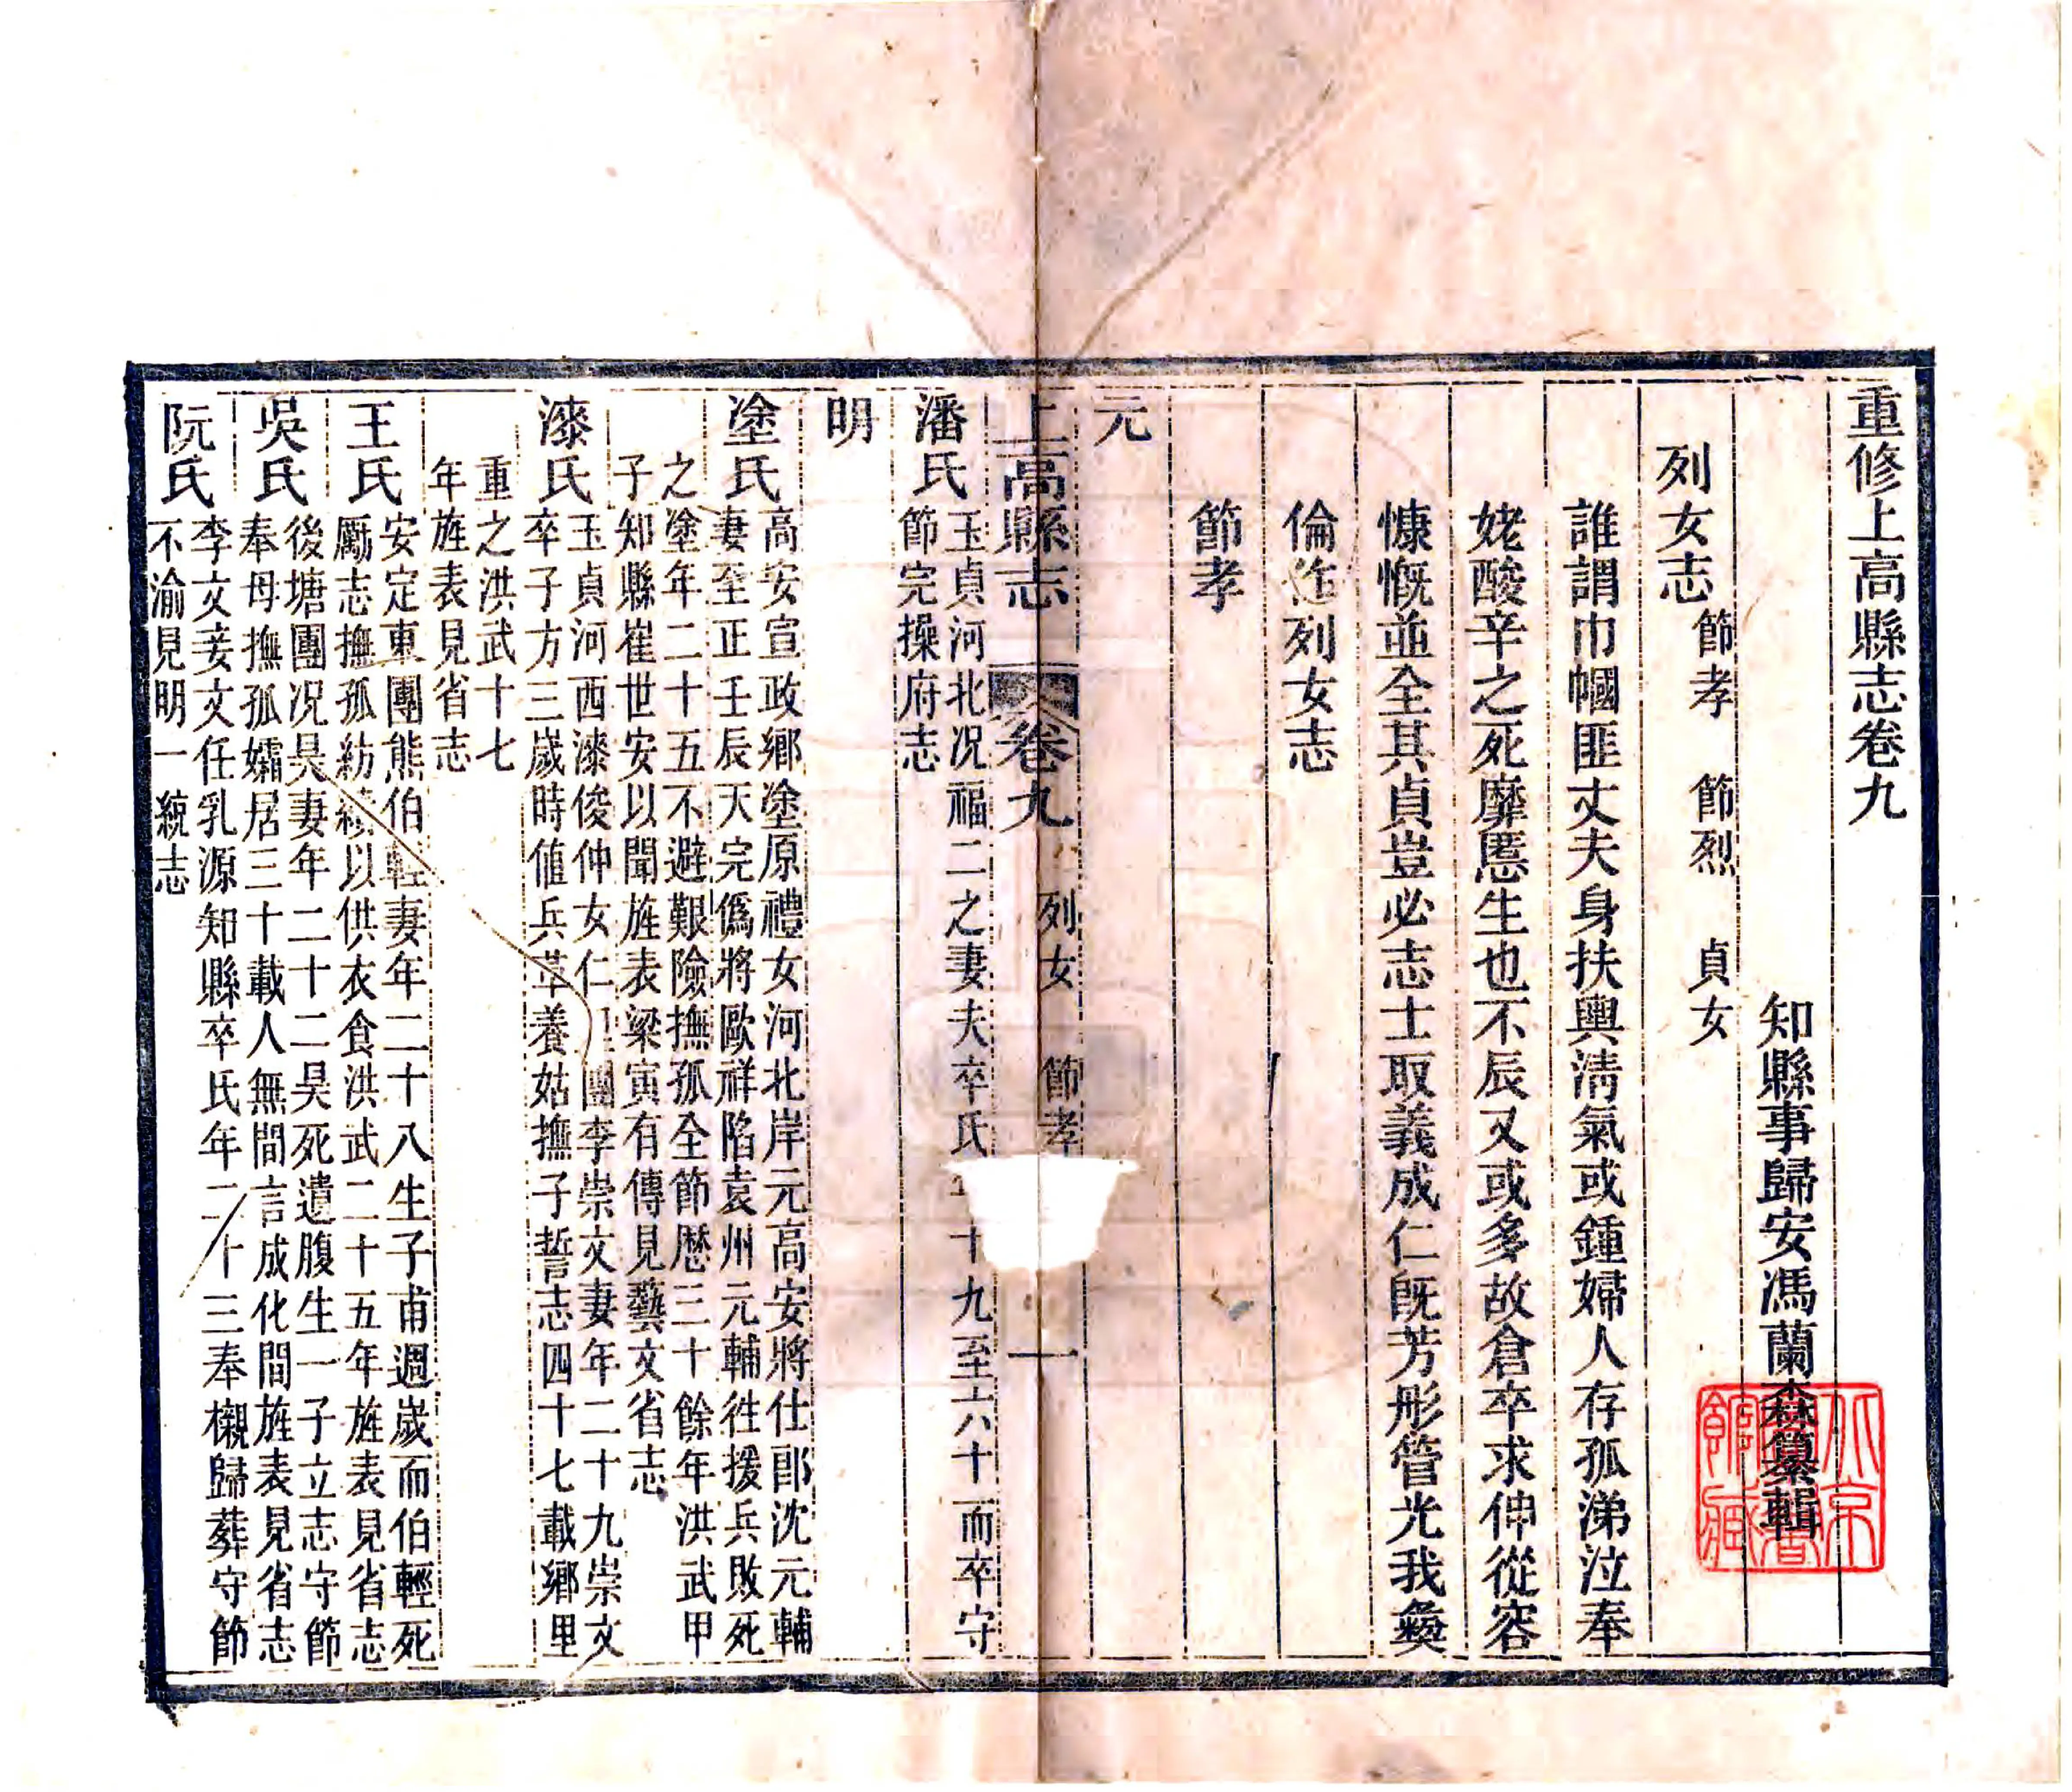 重修上高縣志卷九
知縣事歸安馮蘭森纂輯
列女志 節孝 節烈 貞女
誰謂巾幗匪丈夫身扶輿清氣或鍾婦人存孤涕泣奉
姥酸辛之死靡慝生也不辰又或多故倉卒求伸從容
慷慨並全其貞豈必志士取義成仁既芳彤管光我彝
倫 列女志
節孝
元
上高縣志 卷九 列女 節孝 一
潘氏
玉貞河北况福二之妻夫卒氏 十九至六十而卒守
節完操府志
明
塗氏
高安宣政鄉塗原禮女河北岸元高安將仕郎沈元輔
妻至正壬辰天完僞將歐祥陷袁州元輔徃援兵敗死
之塗年二十五不避艱險撫孤全節歷三十餘年洪武甲
子知縣崔世安以聞旌表梁寅有傳見藝文省志
漆氏
玉貞河西漆俊仲女仁 團李崇文妻年二十九崇文
卒子方三歲時值兵革養姑撫子誓志四十七載鄉里
重之洪武十七
年旌表見省志
王氏
安定東團熊伯輕妻年二十八生子甫週歲而伯輕死
勵志撫孤紡績以供衣食洪武二十五年旌表見省志
吳氏
後塘團况昊妻年二十二昊死遺腹生一子立志守節
奉母撫孤孀居三十載人無間言成化間旌表見省志
阮氏
李文妾文任乳源知縣卒氏年二十三奉櫬歸葬守節
不渝見明一統志
北京
圖書
館藏